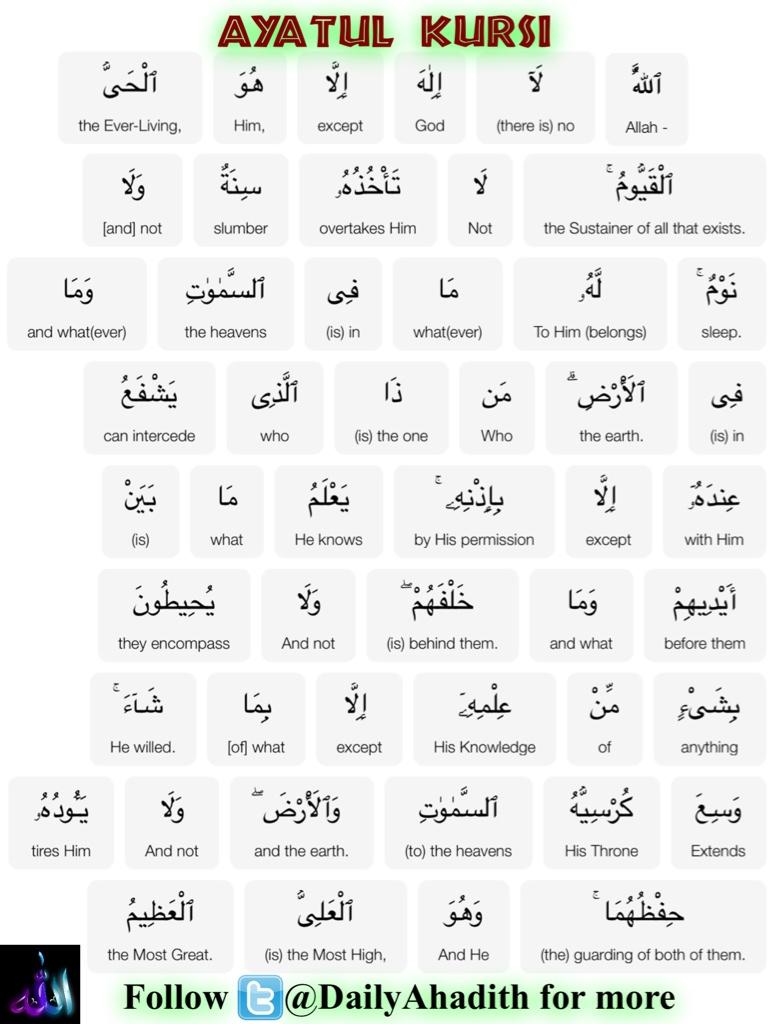 AYATUL KURSI
ٱللَّهُ لَآ إِلَٰهَ إِلَّا هُوَ ٱلْحَىُّ
Allah - (there is) no God except Him, the Ever-Living,
ٱلْقَيُّومُ ۚ لَا تَأْخُذُهُۥ سِنَةٌ وَلَا
the Sustainer of all that exists. Not overtakes Him slumber [and] not
نَوْمٌ ۚ لَّهُۥ مَا فِى ٱلسَّمَٰوَٰتِ وَمَا
sleep. To Him (belongs) what(ever) (is) in the heavens and what(ever)
فِى ٱلْأَرْضِ ۗ مَن ذَا ٱلَّذِى يَشْفَعُ
(is) in the earth. Who (is) the one who can intercede
عِندَهُۥٓ إِلَّا بِإِذْنِهِۦ ۚ يَعْلَمُ مَا بَيْنَ
with Him except by His permission He knows what (is)
أَيْدِيهِمْ وَمَا خَلْفَهُمْ ۖ وَلَا يُحِيطُونَ
before them and what (is) behind them. And not they encompass
بِشَىْءٍ مِّنْ عِلْمِهِۦٓ إِلَّا بِمَا شَآءَ ۚ
anything of His Knowledge except [of] what He willed.
وَسِعَ كُرْسِيُّهُ ٱلسَّمَٰوَٰتِ وَٱلْأَرْضَ ۖ وَلَا يَـُٔودُهُۥ
Extends His Throne (to) the heavens and the earth. And not tires Him
حِفْظُهُمَا ۚ وَهُوَ ٱلْعَلِىُّ ٱلْعَظِيمُ
(the) guarding of both of them. And He (is) the Most High, the Most Great.
الله
Follow t @DailyAhadith for more